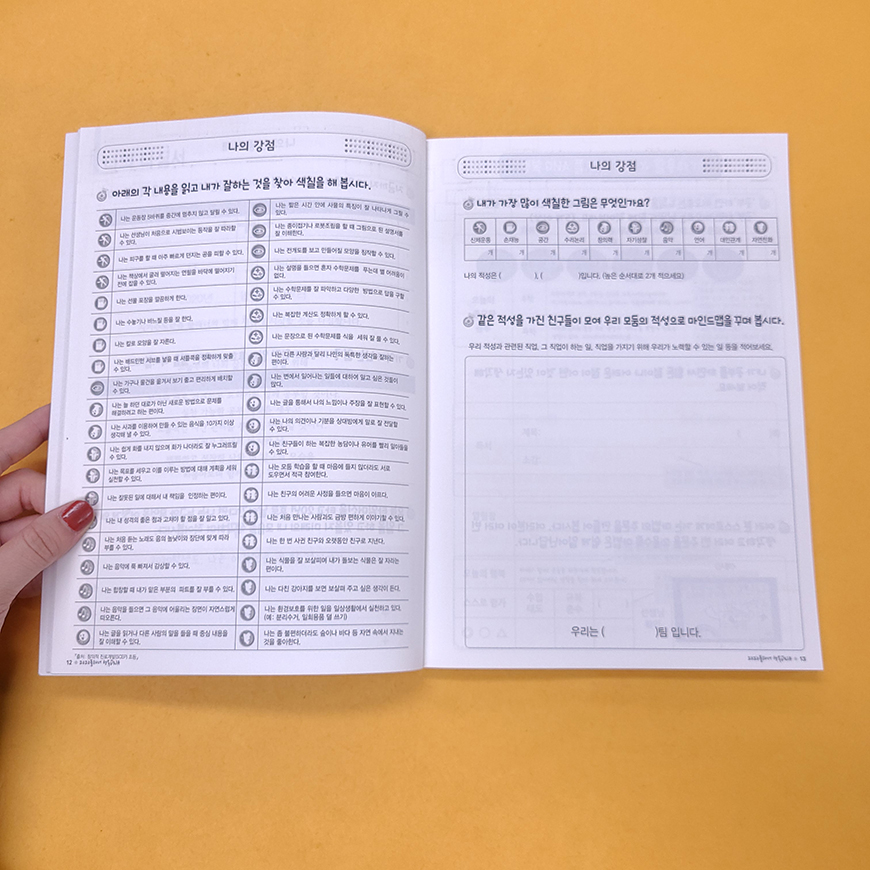 나의 강점
아래의 각 내용을 읽고 내가 잘하는 것을 찾아 색칠을 해 봅시다.
나는 운동장 5바퀴를 중간에 멈추지 않고 달릴 수 있다.
나는 선생님이 처음으로 시범보이는 동작을 잘 따라할
수 있다.
나는 피구를 할 때 아주 빠르게 던지는 공을 피할 수 있다.
나는 책상에서 굴러 떨어지는 연필을 바닥에 떨어지기
전에 잡을 수 있다.
나는 선물 포장을 깔끔하게 한다.
나는 수놓기나 바느질 등을 잘 한다.
나는 칼로 모양을 잘 자른다.
나는 배드민턴 서브를 넣을 때 셔틀콕을 정확하게 맞출
수 있다.
나는 가구나 물건을 옮겨서 보기 좋고 편리하게 배치할
수 있다.
나는 늘 하던 대로가 아닌 새로운 방법으로 문제를
해결하려고 하는 편이다.
나는 사과를 이용하여 만들 수 있는 음식을 10가지 이상
생각해 낼 수 있다.
나는 쉽게 화를 내지 않으며 화가 나더라도 잘 누그러트릴
수 있다.
나는 목표를 세우고 이를 이루는 방법에 대해 계획을 세워
실천할 수 있다.
나는 잘못된 일에 대해서 내 책임을 인정하는 편이다.
나는 내 성격의 좋은 점과 고쳐야 할 점을 잘 알고 있다.
나는 처음 듣는 노래도 음의 높낮이와 장단에 맞게 따라
부를 수 있다.
나는 음악에 푹 빠져서 감상할 수 있다.
나는 합창할 때 내가 맡은 부분의 파트를 잘 부를 수 있다.
나는 음악을 들으면 그 음악에 어울리는 장면이 자연스럽게
떠오른다.
나는 글을 읽거나 다른 사람의 말을 들을 때 중심 내용을
잘 이해할 수 있다.
나는 짧은 시간 안에 사물의 특징이 잘 나타나게 그릴 수
있다.
나는 종이접기나 로봇조립을 할 때 그림으로 된 설명서를
잘 이해한다.
나는 전개도를 보고 만들어질 모양을 짐작할 수 있다.
나는 설명을 들으면 혼자 수학문제를 푸는데 별 어려움이
없다.
나는 수학문제를 잘 파악하고 다양한 방법으로 답을 구할
수 있다.
나는 복잡한 계산도 정확하게 할 수 있다.
나는 문장으로 된 수학문제를 식을 세워 잘 풀 수 있다.
나는 다른 사람과 달리 나만의 독특한 생각을 잘하는
편이다.
나는 변에서 일어나는 일들에 대하여 알고 싶은 것들이
많다.
나는 글을 통해서 나의 느낌이나 주장을 잘 표현할 수 있다.
나는 나의 의견이나 기분을 상대방에게 말로 잘 전달할
수 있다.
나는 친구들이 하는 복잡한 농담이나 유머를 빨리 알아들을
수 있다.
나는 모둠 학습을 할 때 마음에 들지 않더라도 서로
도우면서 적극 참여한다.
나는 친구의 어려운 사정을 들으면 마음이 아프다.
나는 처음 만나는 사람과도 금방 편하게 이야기할 수 있다.
나는 한 번 사귄 친구와 오랫동안 친구로 지낸다.
나는 식물을 잘 보살피며 내가 돌보는 식물은 잘 자라는
편이다.
나는 다친 강아지를 보면 보살펴 주고 싶은 생각이 든다.
나는 환경보호를 위한 일을 일상생활에서 실천하고 있다.
(예: 분리수거, 일회용품 덜 쓰기)
나는 좀 불편하더라도 숲이나 바다 등 자연 속에서 지내는
것을 좋아한다.
12
나의 강점
내가 가장 많이 색칠한 그림은 무엇인가요?
신체운동 손재능 공간 수리논리 창의력 자기성찰 음악 언어 대인관계 자연친화
개 개 개 개 개 개 개 개 개 개
나의 적성은 ( ), ( )입니다. (높은 순서대로 2개 적으세요)
같은 적성을 가진 친구들이 모여 우리 모둠의 적성으로 마인드맵을 꾸며 봅시다.
우리 적성과 관련된 직업, 그 직업이 하는 일, 직업을 가지기 위해 우리가 노력할 수 있는 일 등을 적어보세요.
우리는 ( )팀 입니다.
13